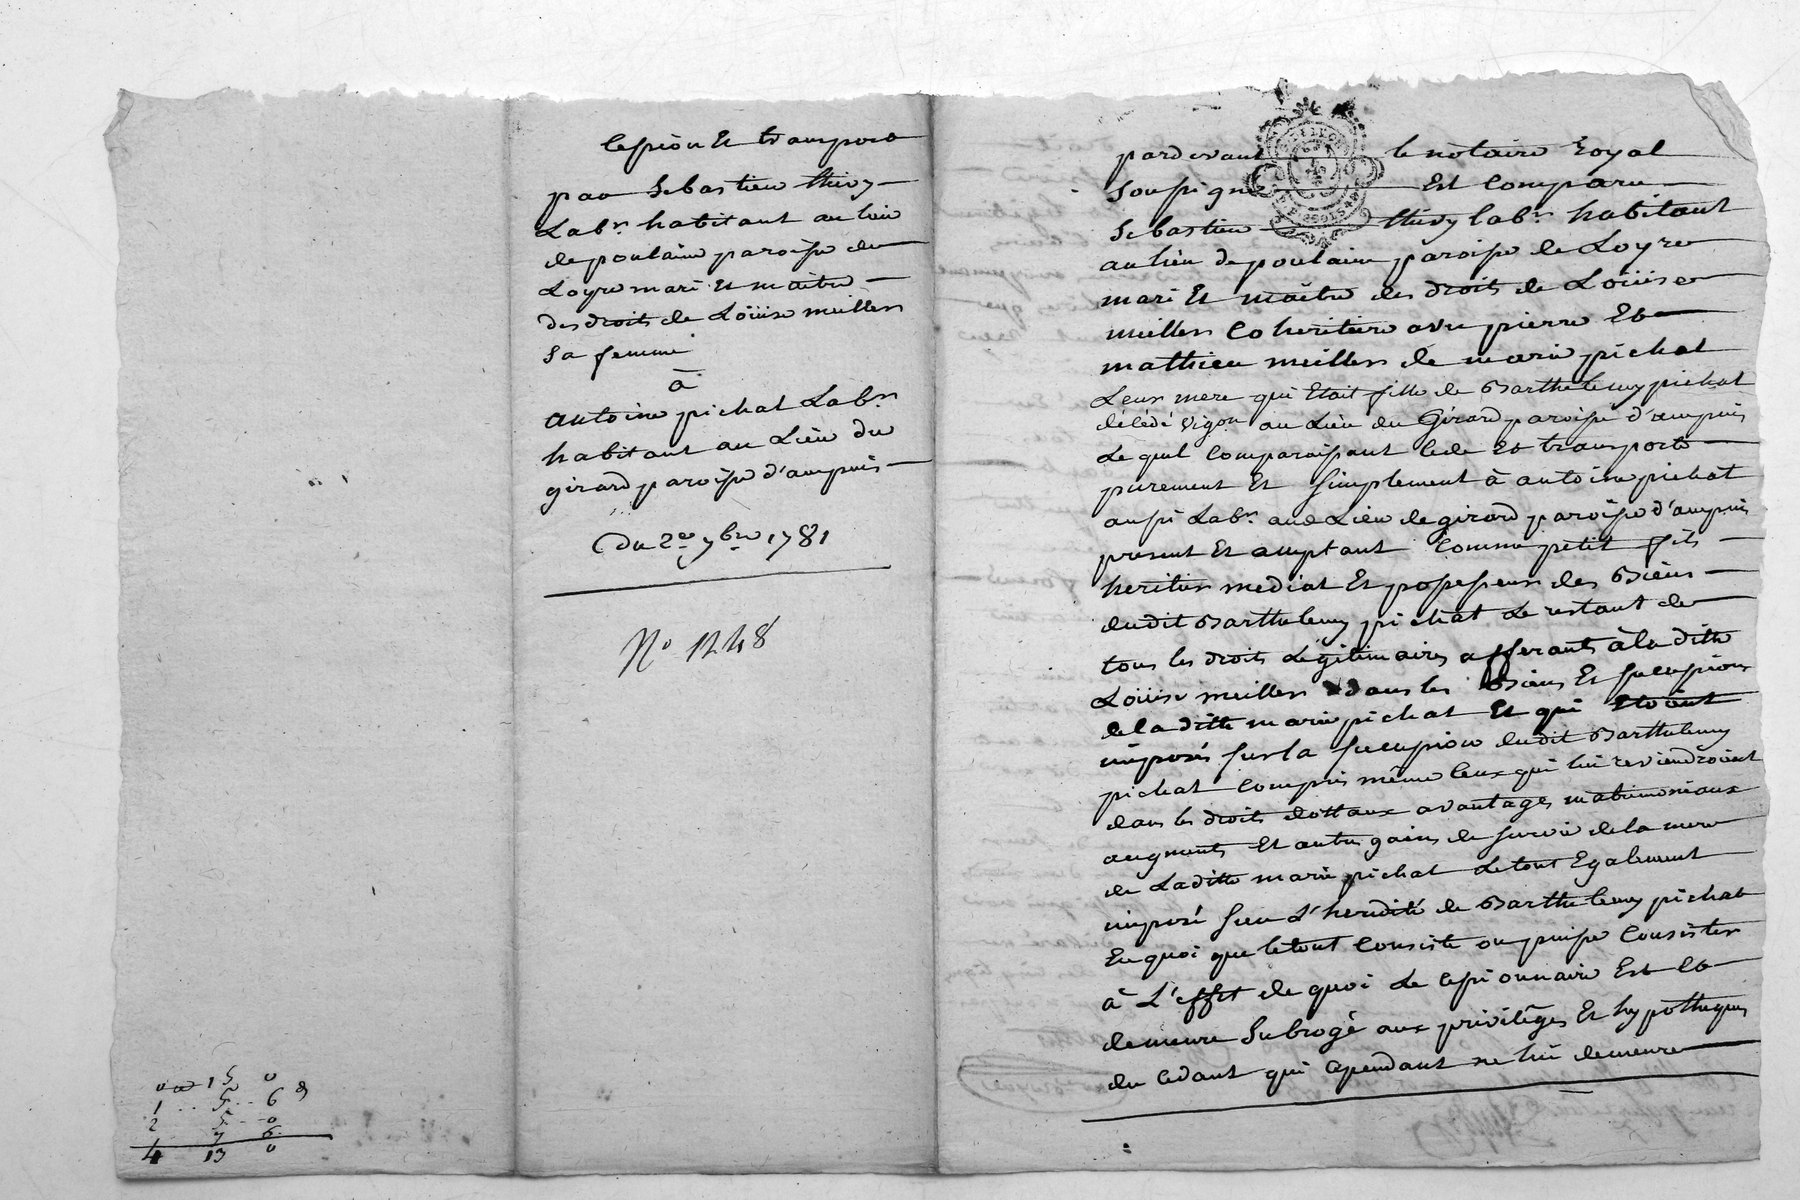 Cession Et transport
par Sebastien thivy
Labr. habitant au lieu
de poulaine paroisse de
Loyre mari Et maitre
des droits de Loüise meiller
Sa femme
à
Antoine pichat Labr.
habitant au Lieu du
girard paroisse d'ampuis
Du 2e 7bre 1781
No 1248
15 0
1 .. 5 .. 6
2 5 .. 0
7 6
4 13 0
pardevant le notaire Royal
Soussigné Est Comparu
Sebastien thivy labr. habitant
au lieu de poulaine paroisse de Loyre
mari Et maitre des droits de Loüise
meiller Coheritiere avec pierre Et
mathieu meiller de marie pichat
Leur mere qui Etait fille de Barthelemy pichat
décédé vigon au Lieu du Girard paroisse d'ampuis
Lequel Comparaissant Cede Et transporte
purement Et Simplement à antoine pichat
aussi Labr. aud. Lieu de girard paroisse d'ampuis
present Et acceptant Comme petit fils
heritier mediat Et possesseur des Biens
dudit Barthelemy pichat Le restant de
tous les droits Légitimaires afferants à la ditte
Loüise meiller dans les Biens Et Successions
de la ditte marie pichat Et qui Etoient
imposés sur la Succession dudit Barthelemy
pichat Compris même Ceux qui lui reviendroient
dans les droits dottaux avantages matrimoniaux
augments Et autres gains de Survie de la mere
de Laditte marie pichat Le tout Egalement
imposé Sur L'heridité de Barthelemy pichat
En quoi que le tout Consiste ou puisse Consister
à L'effet de quoi Le Cessionnaire Est Et
demeure Subrogé aux privilêges Et hypotheques
du Cedant qui Cependant ne lui demeure